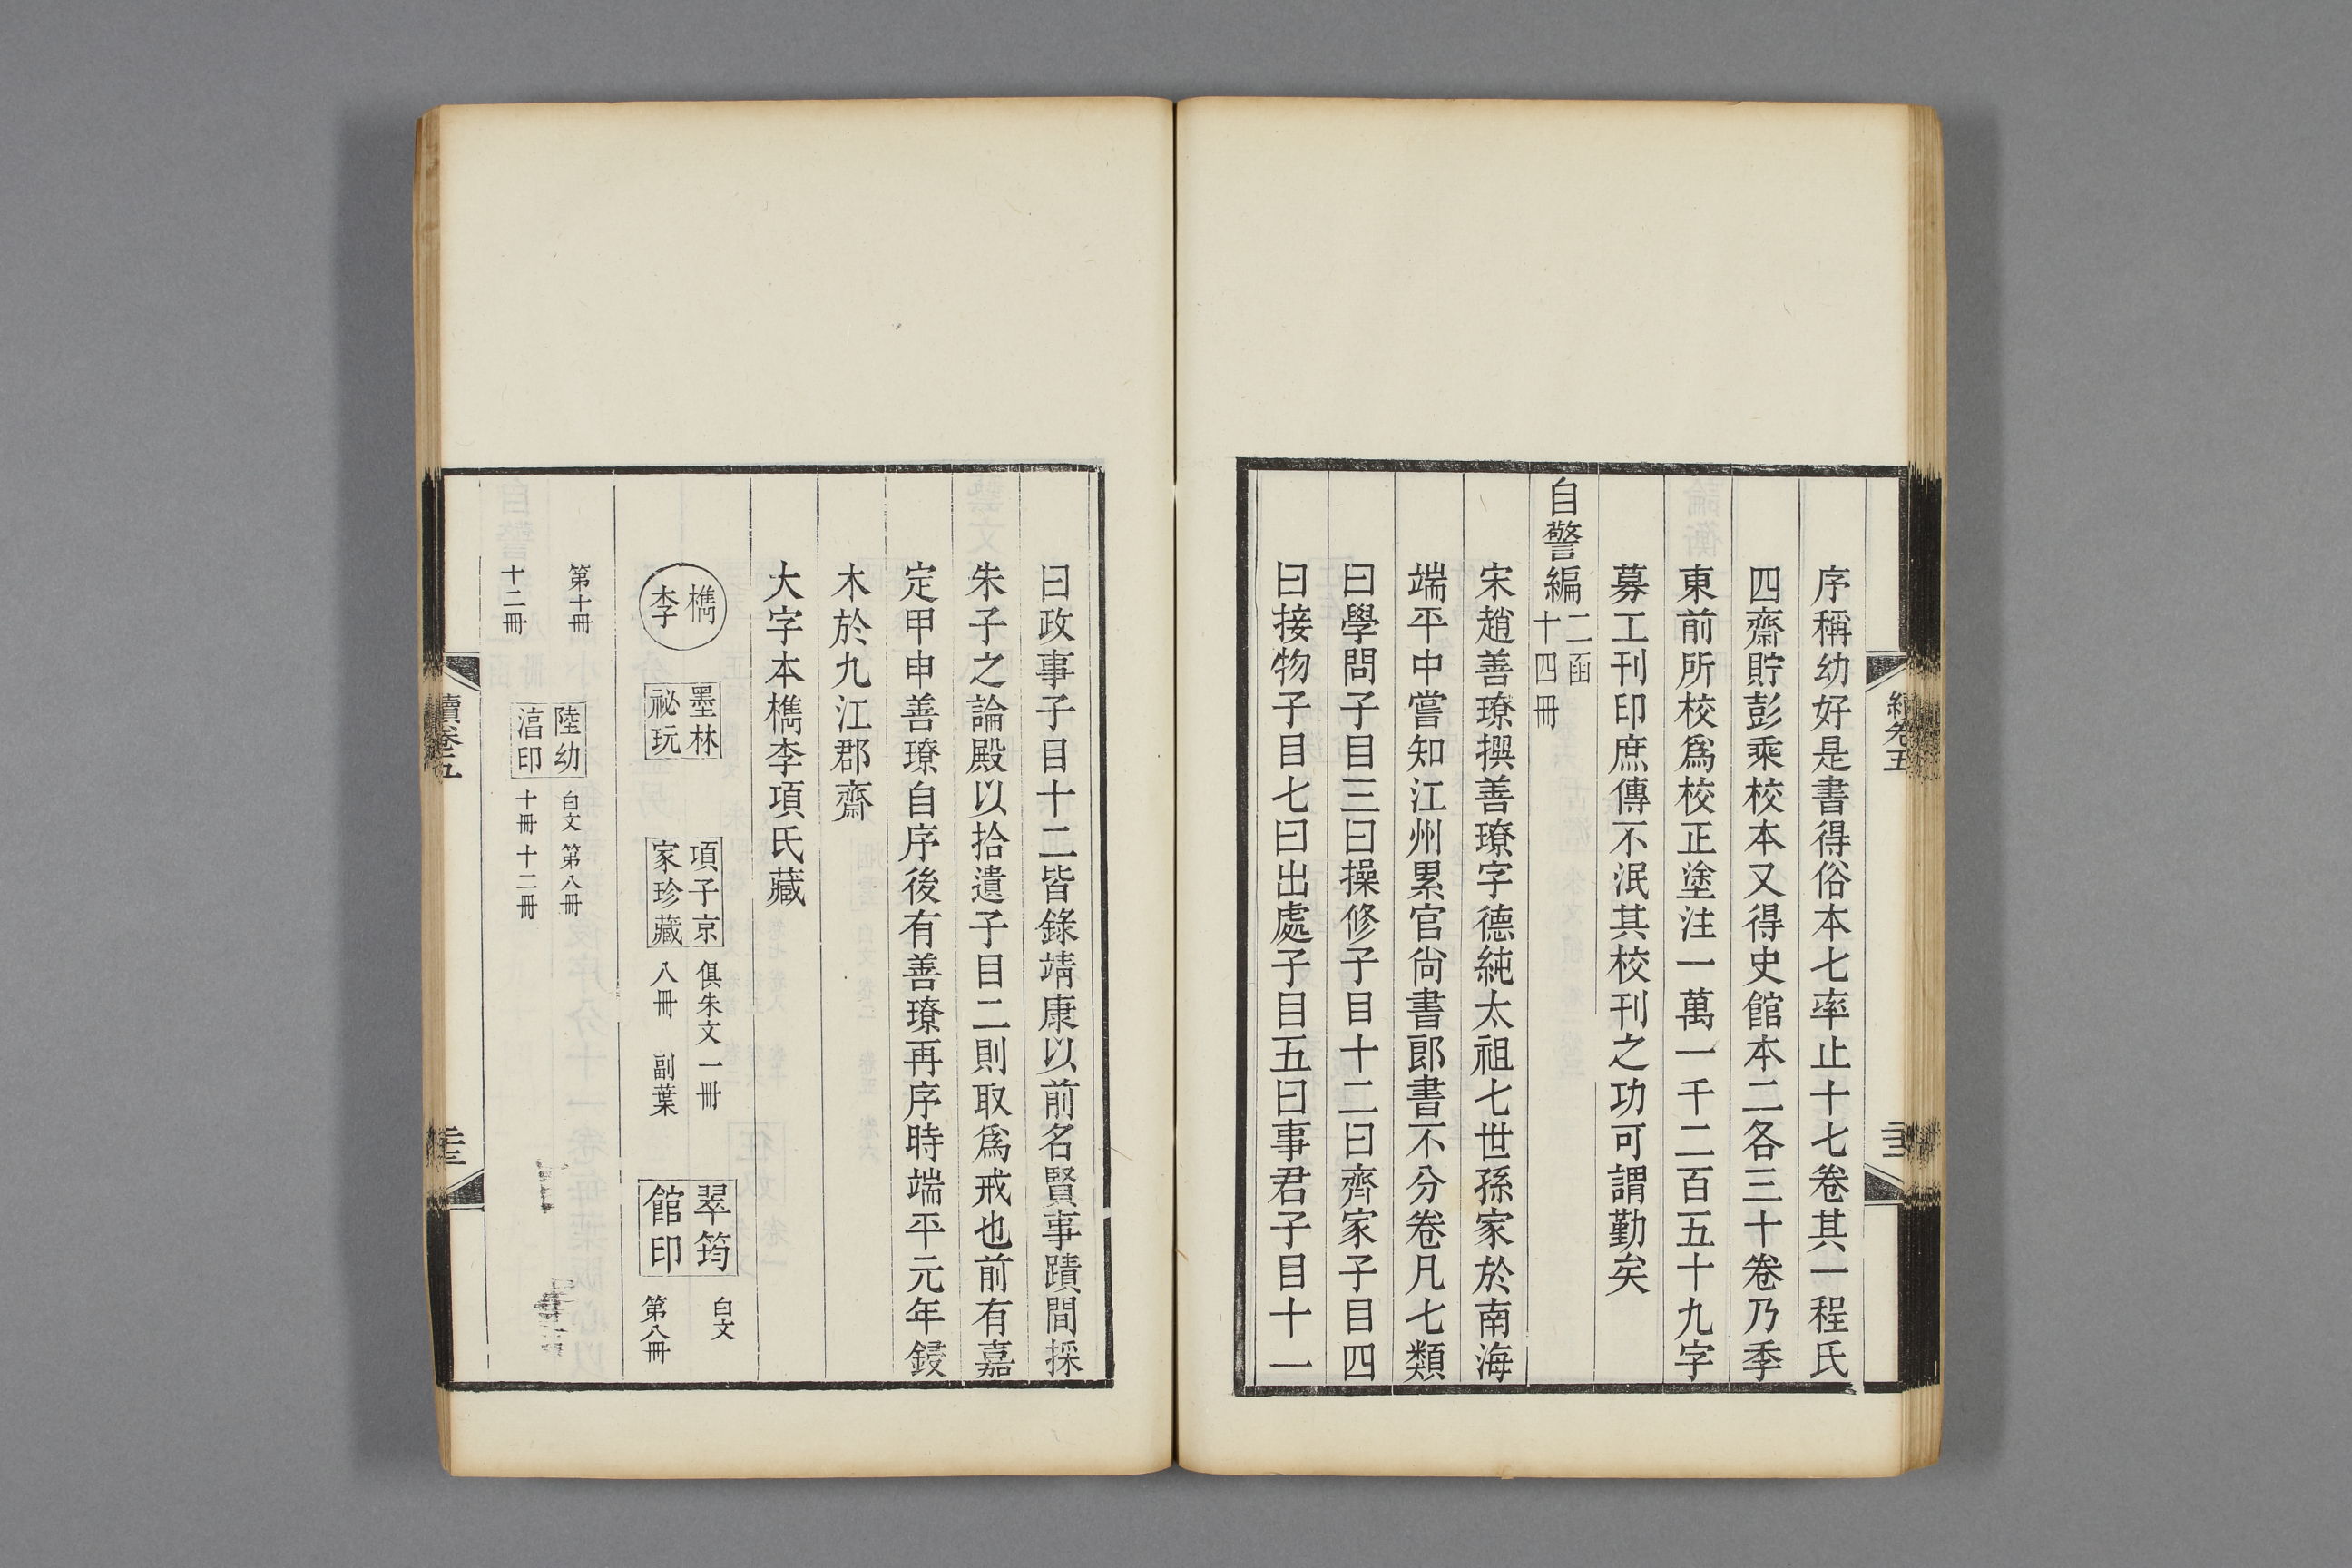 序稱幼好是書得俗本七率止十七卷其一程氏
四齋貯彭乘校本又得史館本二各三十卷乃季
東前所校爲校正塗注一萬一千二百五十九字
募工刊印庶傳不泯其校刊之功可謂勤矣
自警編二函十四冊
宋趙善璙撰善璙字德純太祖七世孫家於南海
端平中嘗知江州累官尙書郎書不分卷凡七類
曰學問子目三曰操修子目十二曰齊家子目四
曰接物子目七曰出處子目五曰事君子目十一
曰政事子目十二皆錄靖康以前名賢事蹟間採
朱子之論殿以拾遺子目二則取爲戒也前有嘉
定甲申善璙自序後有善璙再序時端平元年鋟
木於九江郡齋
大字本檇李項氏藏
檇李
墨林祕玩
項子京家珍藏
俱朱文一冊
八冊 副葉
翠筠館印
白文
第八冊
第十冊
十二冊
陸幼湻印
白文 第八冊
十冊 十二冊
續卷五